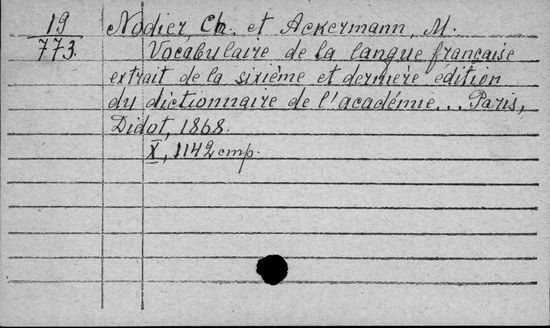 19 Nodier, Ch. et Ackermann, M.
773. Vocabulaire de la langue française
extrait de la sixième et dernière édition
du dictionnaire de l'académie... Paris,
Didot, 1868.
X, 1142 стр.